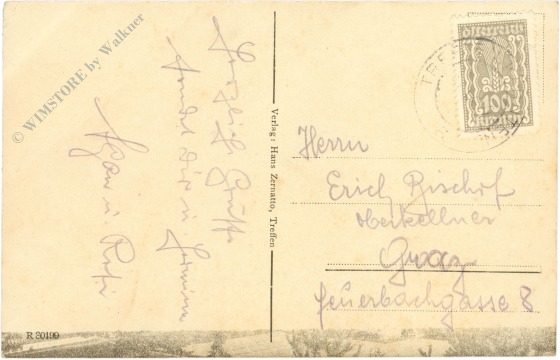 © WIMSTORE by Walkner
Herzliche Grüße
sendet Dir u
u.
Verlag: Hans Zernatto, Treffen
Österreich
100
Kronen
TREFFEN
Herrn
Erich Bischof
Oberkellner
Graz
Feuerbachgasse 8
R 20199